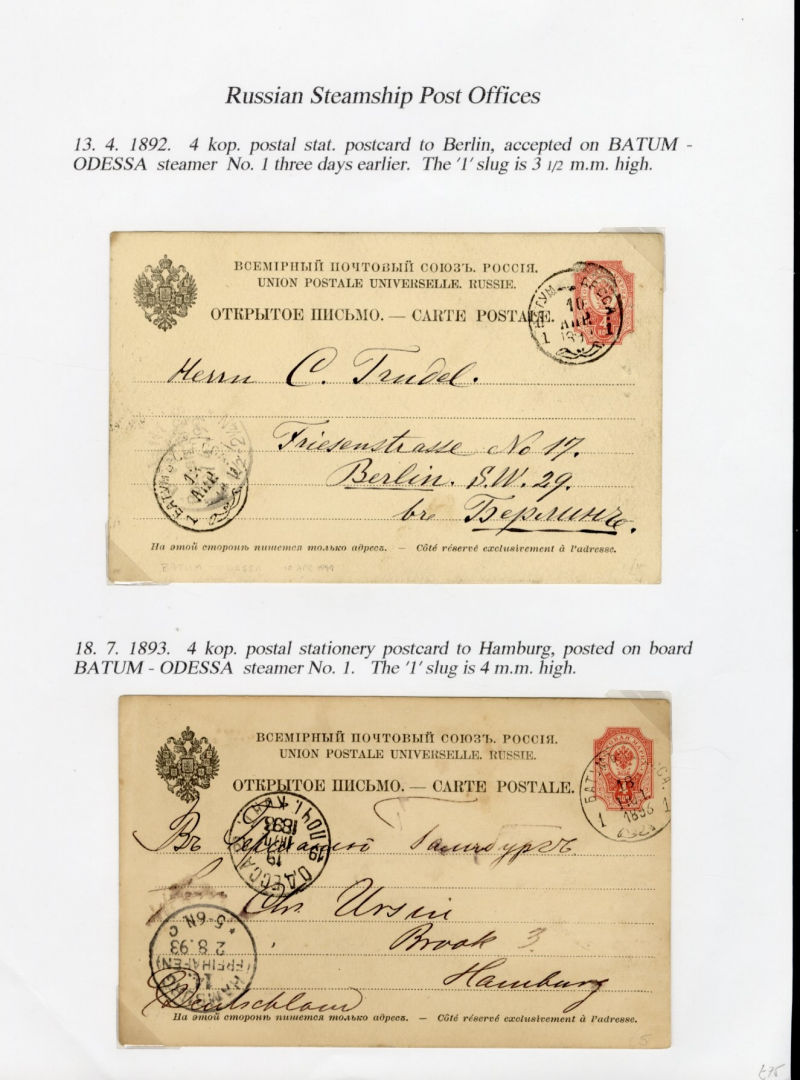 Russian Steamship Post Offices
13. 4. 1892. 4 kop. postal stat. postcard to Berlin, accepted on BATUM -
ODESSA steamer No. 1 three days earlier. The '1' slug is 3 1/2 m.m. high.
ВСЕМІРНЫЙ ПОЧТОВЫЙ СОЮЗЪ. РОССІЯ.
UNION POSTALE UNIVERSELLE. RUSSIE.
ОТКРЫТОЕ ПИСЬМО. — CARTE POSTALE.
БАТУМ
10
АПР.
1 1
Herrn C. Trudel.
Friesenstrasse No 17.
Berlin. S.W. 29.
въ Берлинъ.
БАТУМ
АПР
1
На этой сторонѣ пишется только адресъ. — Côté réservé exclusivement à l'adresse.
18. 7. 1893. 4 kop. postal stationery postcard to Hamburg, posted on board
BATUM - ODESSA steamer No. 1. The '1' slug is 4 m.m. high.
ВСЕМІРНЫЙ ПОЧТОВЫЙ СОЮЗЪ. РОССІЯ.
UNION POSTALE UNIVERSELLE. RUSSIE.
ОТКРЫТОЕ ПИСЬМО. — CARTE POSTALE.
БАТУМ
18
1893
1 1
Въ Германію Гамбургъ
ОДЕССА
19
1893
ПОЧТ.
Chr. Ursin
Brook 3
Hamburg
Deutschland
HAMBURG
(FREIHAFEN)
2.8.93
5-6N
На этой сторонѣ пишется только адресъ. — Côté réservé exclusivement à l'adresse.
£75